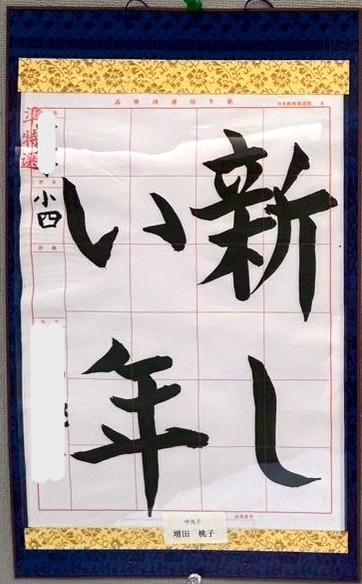 新し
い年
準特選
小四
増田 桃子